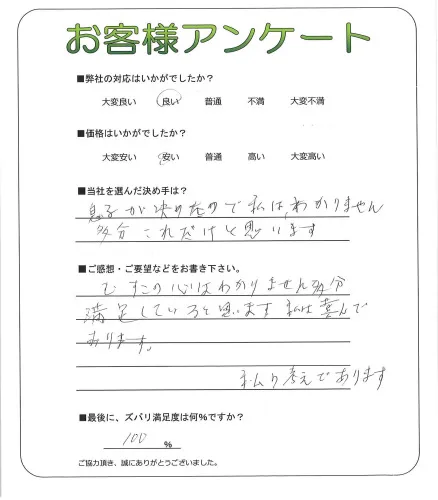 お客様アンケート
■弊社の対応はいかがでしたか？
大変良い 良い 普通 不満 大変不満
■価格はいかがでしたか？
大変安い 安い 普通 高い 大変高い
■当社を選んだ決め手は？
息子が決めたので私は、わかりません
多分これだけと思います
■ご感想・ご要望などをお書き下さい。
むすこの心はわかりません多分
満足していると思います 私は喜んで
おります。
私の考えであります
■最後に、ズバリ満足度は何％ですか？
100 %
ご協力頂き、誠にありがとうございました。